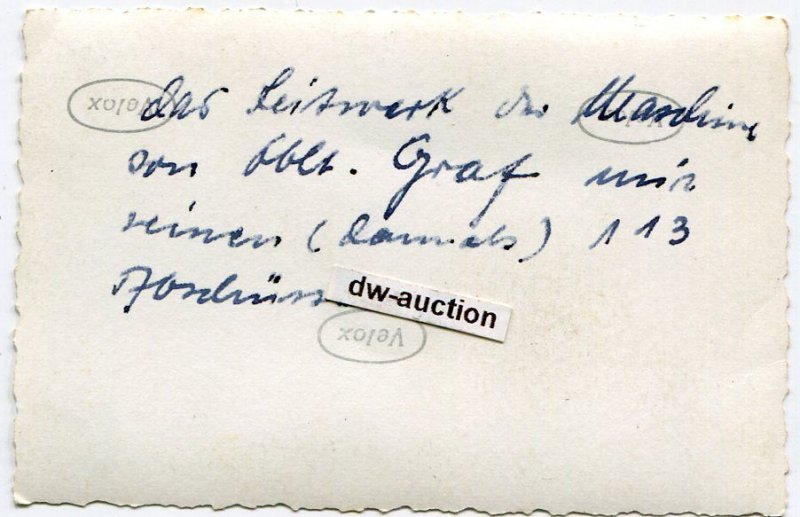 Velox
das Leitwerk der Maschine
von Oblt. Graf mit
seinen (damals) 113
Abschüssen
dw-auction
Velox